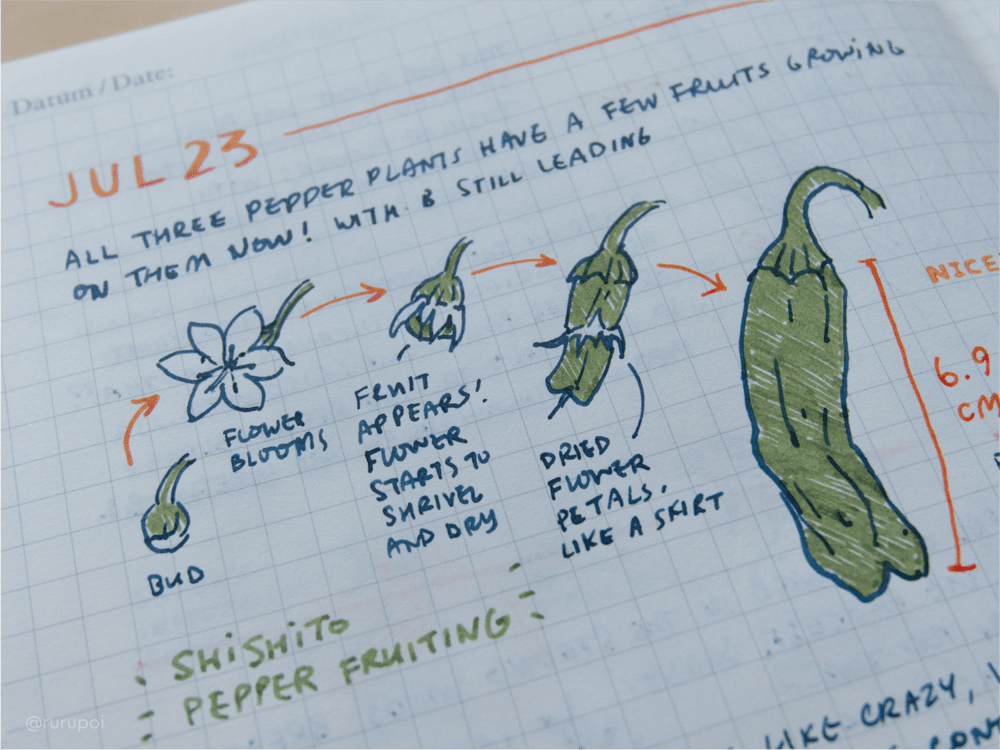 Datum / Date:
JUL 23
ALL THREE PEPPER PLANTS HAVE A FEW FRUITS GROWING
ON THEM NOW! WITH B STILL LEADING
FLOWER
BLOOMS
BUD
FRUIT
APPEARS!
FLOWER
STARTS TO
SHRIVEL
AND DRY
DRIED
FLOWER
PETALS,
LIKE A SKIRT
NICE
6.9
CM
SHISHITO
PEPPER FRUITING
LIKE CRAZY,
@rurupoi